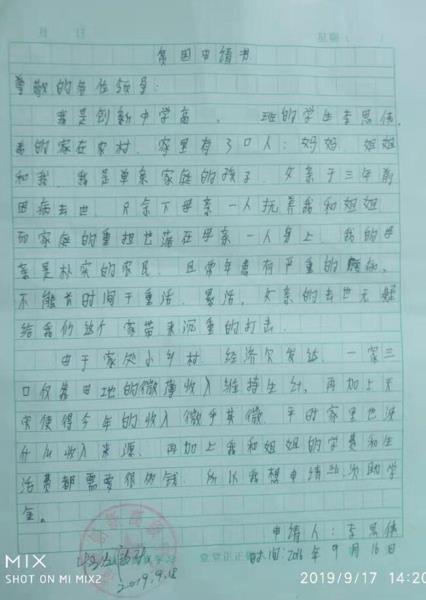 贫困申请书
尊敬的各位领导：
我是创新中学高 班的学生李思伟，
我的家在农村，家里有3口人：妈妈、姐姐
和我，我是单亲家庭的孩子，父亲于三年前
因病去世，只余下母亲一人抚养我和姐姐，
而家庭的重担也落在母亲一人身上，我的母
亲是朴实的农民，且常年患有严重的 病，
不能长时间干重活、累活，父亲的去世无疑
给我们这个家带来沉重的打击。
由于家处小乡村，经济欠发达，一家三
口仅靠田地的微薄收入维持生计，再加上天
灾使得今年的收入微乎其微，平时家里也没
什么收入来源，再加上我和姐姐的学费和生
活费都需要很多钱，所以我想申请此次助学
金。
申请人：李思伟
时间：2016年9月16日
2019.9.18
MIX
SHOT ON MI MIX2
2019/9/17 14:20